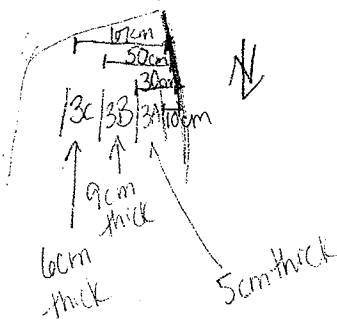 61cm
50cm
30cm
3C 3B 3A 10cm
9cm
thick
6cm
thick
5cm thick
N